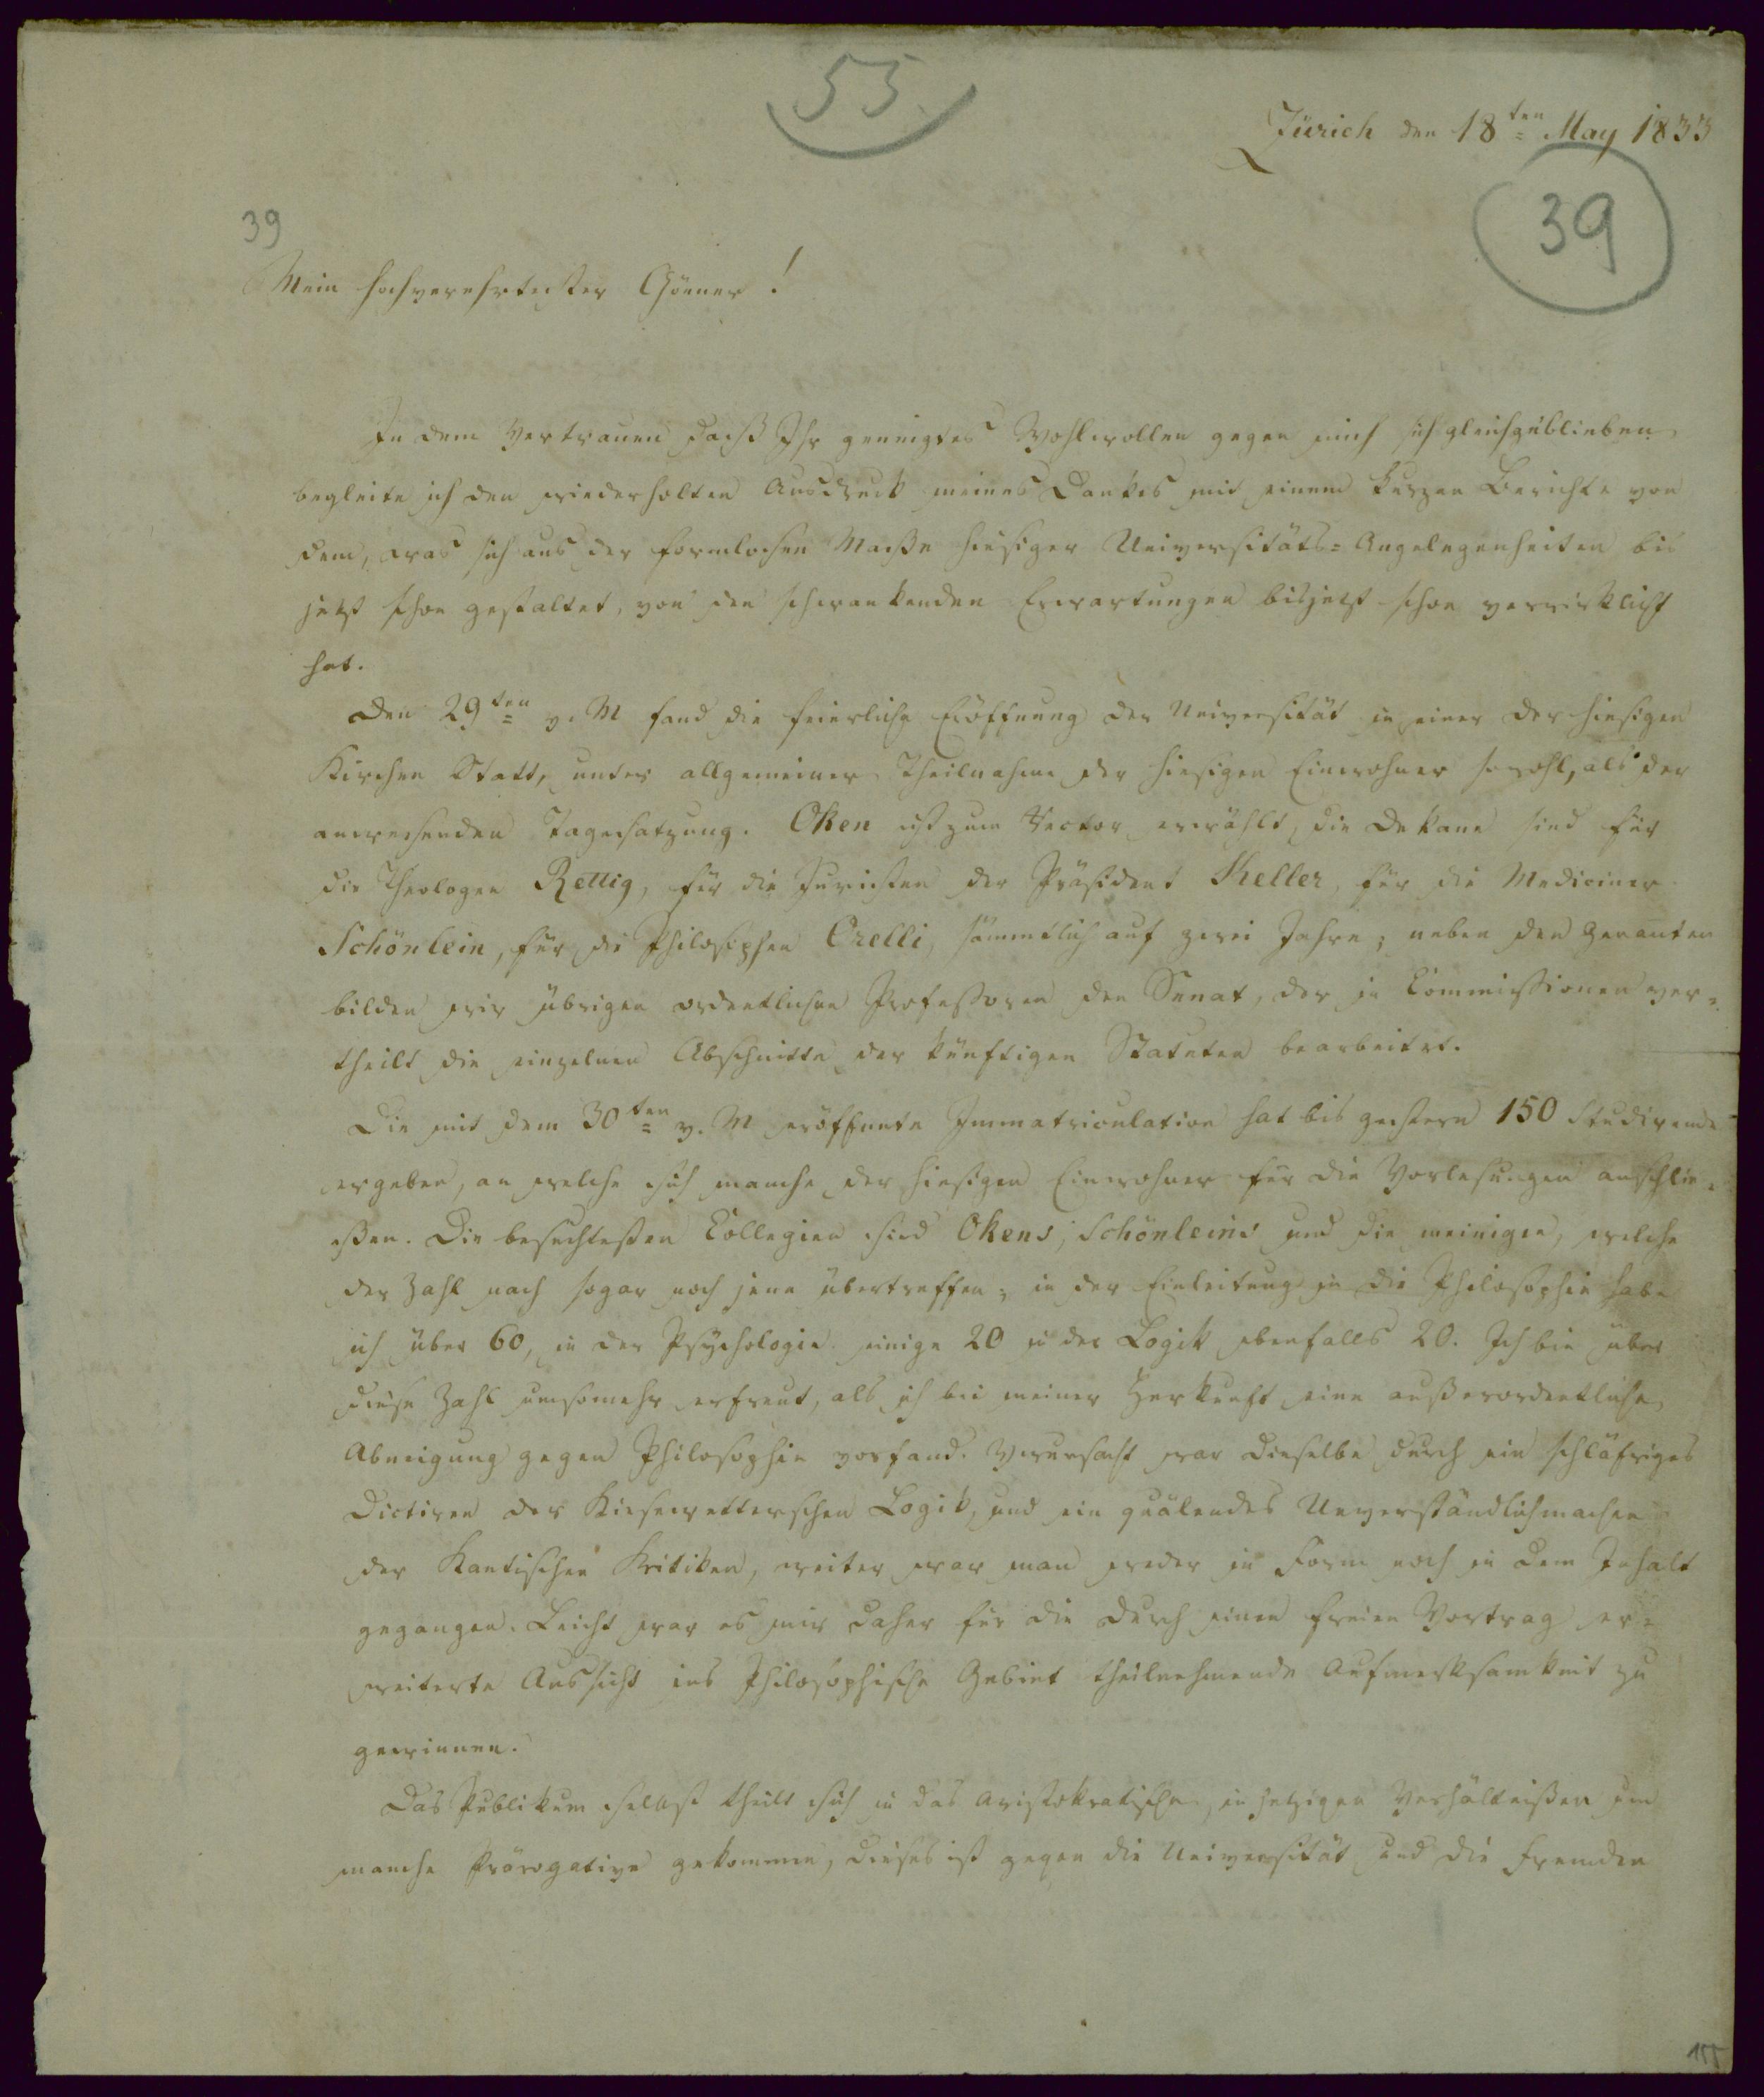 55.
Zürich den 18ten May 1833
39
39
Mein hochverehrtester Gönner!
In dem Vertrauen daß Ihr geneigtes Wohlwollen gegen mich sich gleichgeblieben
begleite ich den wiederholten Ausdruck meines Dankes mit einem kurzen Berichte von
dem, was sich aus der formlosen Maße hiesiger Universitäts-Angelegenheiten bis
jetzt schon gestaltet, von den schwankenden Erwartungen bisjetzt schon verwirklicht
hat.
Den 29ten v. M fand die feierliche Eröffnung der Universität in einer der hiesigen
Kirchen Statt, unter allgemeiner Theilnahme der hiesigen Einwohner sowohl, als der
anwesenden Tagesatzung. Oken ist zum Rector erwählt, die Dekane sind für
die Theologen Rettig, für die Juristen der Präsident Keller, für die Mediciner
Schönlein, für die Philosophen Orelli, sämmtlich auf zwei Jahre; neben den Genanten
bilden wir übrigen ordentlichen Professoren den Senat, der in Commissionen ver-
theilt die einzelnen Abschnitte der künftigen Statuten bearbeitet.
Die mit dem 30ten v. M eröffnete Immatriculation hat bis gestern 150 Studirende
ergeben, an welche sich manche der hiesigen Einwohner für die Vorlesungen anschlie-
ßen. Die besuchtesten Collegien sind Okens, Schönleins und die meinigen, welche
der Zahl nach sogar noch jene übertreffen; in der Einleitung in die Philosophie habe
ich über 60, in der Psychologie einige 20 in der Logik ebenfalls 20. Ich bin über
diese Zahl umsomehr erfreut, als ich bei meiner Herkunft eine außerordentliche
Abneigung gegen Philosophie vorfand. Verursacht war dieselbe durch ein schläfriges
Dictiren der Kiesewetterschen Logik, und ein quälendes Unverständlichmachen
der Kantischen Kritiken, weiter war man weder in Form noch in dem Inhalt
gegangen. Leicht war es mir daher für die durch einen freien Vortrag er-
weiterte Aussicht ins Philosophische Gebiet theilnehmende Aufmerksamkeit zu
gewinnen.
Das Publikum selbst theilt sich in das Aristokratische, in jetzigen Verhältnißen um
manche Prärogative gekommen, dieses ist gegen die Universität und die Fremden
155